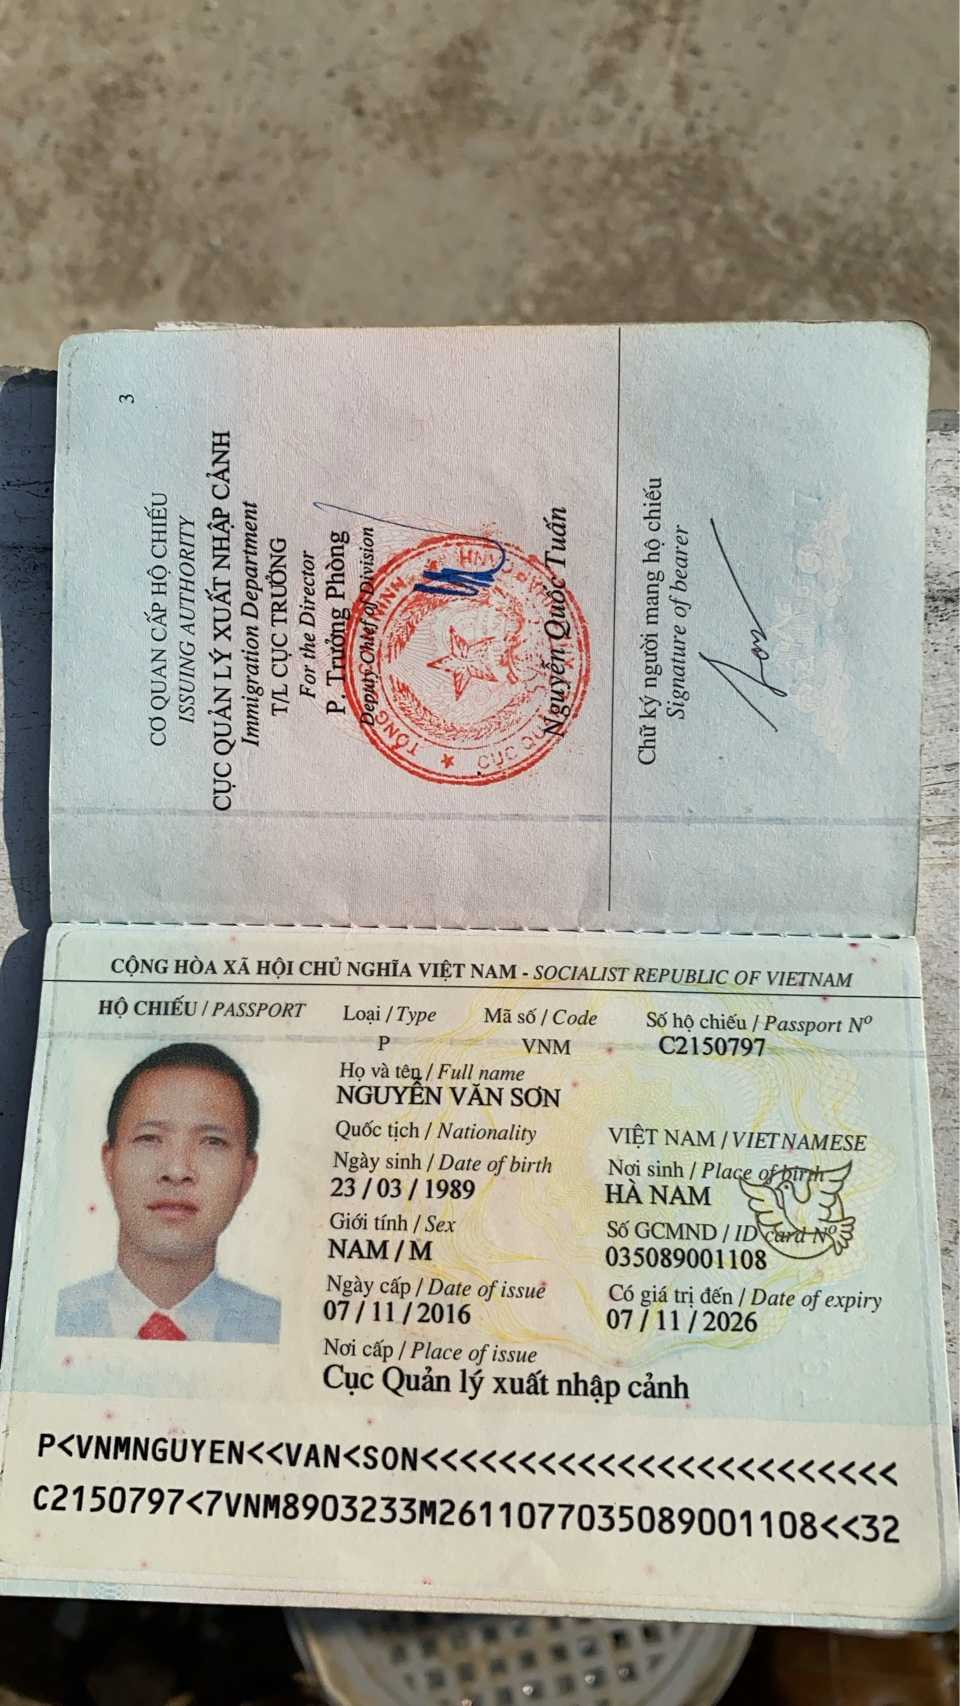 3
CƠ QUAN CẤP HỘ CHIẾU
ISSUING AUTHORITY
CỤC QUẢN LÝ XUẤT NHẬP CẢNH
Immigration Department
T/L CỤC TRƯỞNG
For the Director
P. Trưởng Phòng
Deputy Chief of Division
Nguyễn Quốc Tuấn
Chữ ký người mang hộ chiếu
Signature of bearer
Son
CỘNG HÒA XÃ HỘI CHỦ NGHĨA VIỆT NAM - SOCIALIST REPUBLIC OF VIETNAM
HỘ CHIẾU / PASSPORT Loại / Type Mã số / Code Số hộ chiếu / Passport Nº
P VNM C2150797
Họ và tên / Full name
NGUYỄN VĂN SƠN
Quốc tịch / Nationality VIỆT NAM / VIETNAMESE
Ngày sinh / Date of birth Nơi sinh / Place of birth
23 / 03 / 1989 HÀ NAM
Giới tính / Sex Số GCMND / ID card Nº
NAM / M 035089001108
Ngày cấp / Date of issue Có giá trị đến / Date of expiry
07 / 11 / 2016 07 / 11 / 2026
Nơi cấp / Place of issue
Cục Quản lý xuất nhập cảnh
P<VNMNGUYEN<<VAN<SON<<<<<<<<<<<<<<<<<<<<<<<<
C2150797<7VNM8903233M2611077035089001108<<32